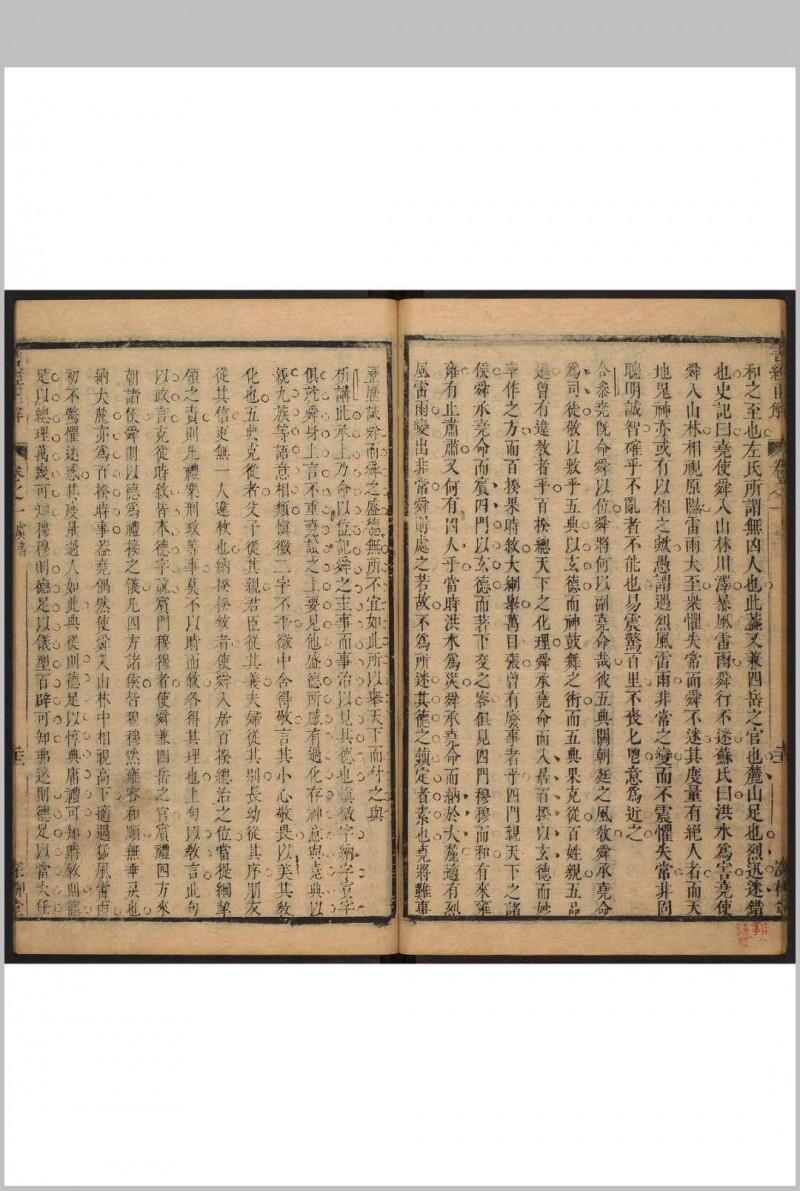 和之至也左氏所謂無凶人也此蓋又兼四岳之官也麓山足也烈迅迷錯
也史記曰堯使舜入山林川澤暴風雷雨舜行不迷蘇氏曰洪水為害堯使
舜入山林相視原隰雷雨大至衆懼失常而舜不迷其度量有絕人者而天
地鬼神亦或有以相之歟愚謂遇烈風雷雨非常之變而不震懼失常非固
聰明誠智確乎不亂者不能也易震驚百里不喪匕鬯意為近之
合參堯既命舜以位舜將何以副堯命哉彼五典關朝廷之風教舜承堯命
為司徒敬以敷乎五典以玄德而神鼓舞之術而五典果克從百姓親五品
遜曾有違教者乎百揆總天下之化理舜承堯命而入居百揆以玄德而妙
宰作之方而百揆果時敘大綱舉萬目張曾有廢事者乎四門親天下之諸
侯舜承堯命而賓四門以玄德而著下交之容俱見四門穆穆而和有來雍
雍有止肅肅又何有凶人乎當時洪水為災舜承堯命而納於大麓適有烈
風雷雨變出非常舜則處之若故不為所迷其德之鎮定者素也堯將難事
歷試舜而舜之盛德無所不宜如此所以舉天下而付之與
析講此承上乃命以位記舜之主事而事治以見其德也慎徽字納字賓字
俱就舜身上言不重堯試之上要見他盛德所感有過化存神意與堯典以
親九族等語意相類慎徽二字不平徽中含得敬言其小心敬畏以美其教
化也五典克從者父子從其親君臣從其義夫婦從其別長幼從其序朋友
從其信更無一人違教也納揆揆敘者使舜入居百揆總治之位當提綱挈
領之責則凡禮樂刑政等事莫不以時而敘各得其理也上句以教言此句
以政言克從時敘皆本德字說賓門穆穆者使舜兼四岳之官賓禮四方來
朝諸侯舜則以德為禮接之儀凡四方諸侯皆穆穆然雍容和順無乖戾也
納大麓亦為百揆時事蓋堯偶然使舜入山林中相視高下適遇猛風雷雨
初不驚懼迷惑其度量過人如此典從則德足以惇典庸禮可知時敘則德
足以總理萬幾可知穆穆則德足以儀型百辟可知弗迷則德足以當大任
卷之一虞書